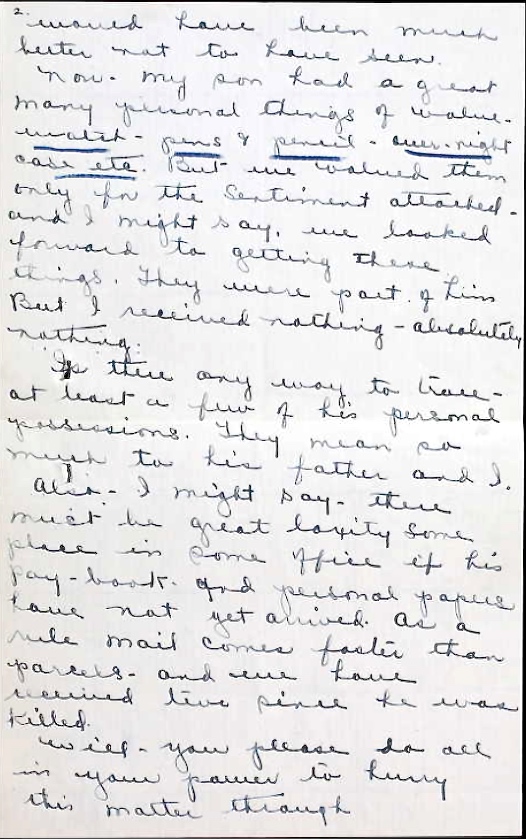 2.
would have been much
better not to have seen.
Now - my son had a great
many personal things of value -
watch - pens & pencil - over-night
case etc. But we valued them
only for the sentiment attached -
and I might say, we looked
forward to getting these
things. They were part of him
But I received nothing - absolutely
nothing.
Is there any way to trace -
at least a few of his personal
possessions. They mean so
much to his father and I.
Also - I might say - there
must be great laxity some
place in some office if his
pay-book - and personal papers
have not yet arrived. As a
rule mail comes faster than
parcels - and we have
received two since he was
killed.
Will - you please do all
in your power to hurry
this matter through